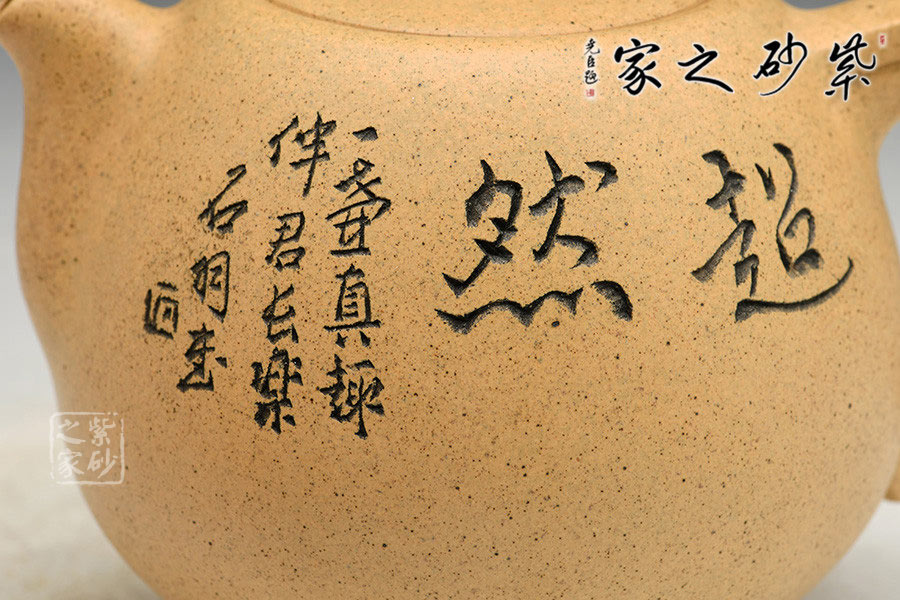 紫砂之家
超然
一壶真趣
伴君长樂
石羽書
紫砂之家